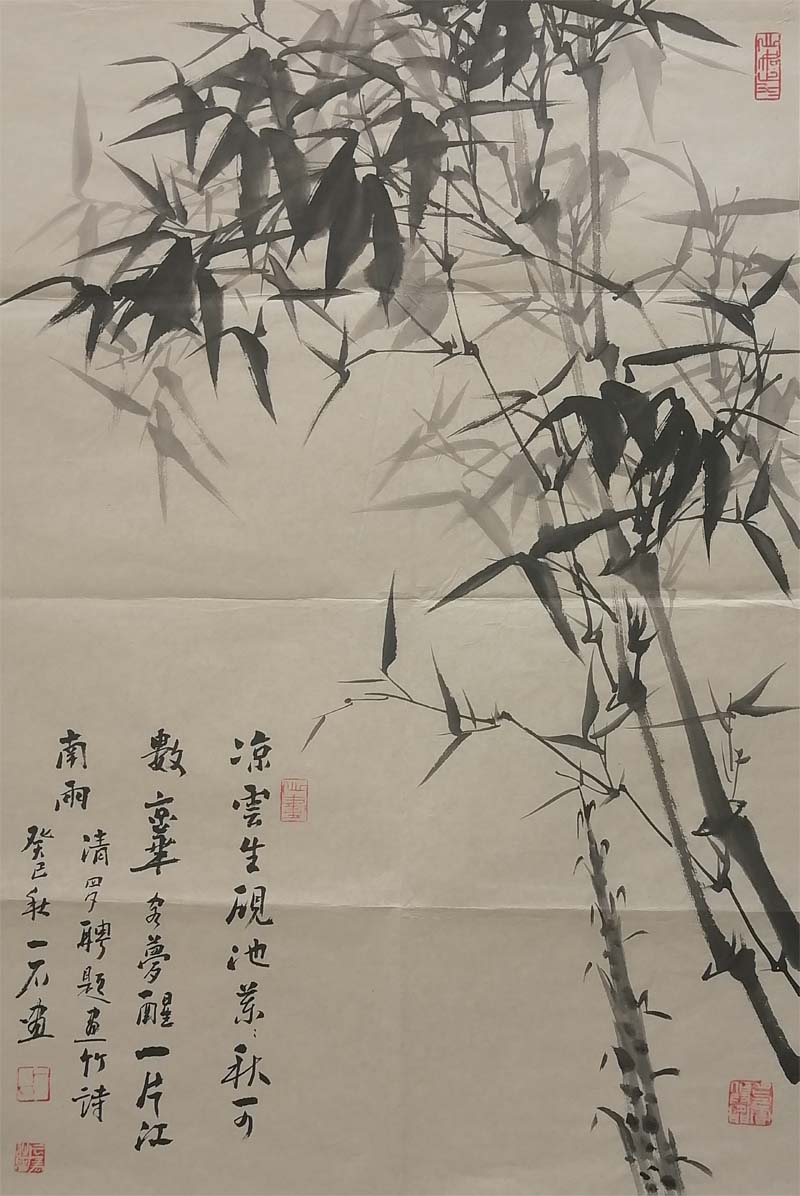 凉雲生硯池葉〻秋可
數京華客夢醒一片江
南雨
清羅聘題畫竹詩
癸巳秋一石畫